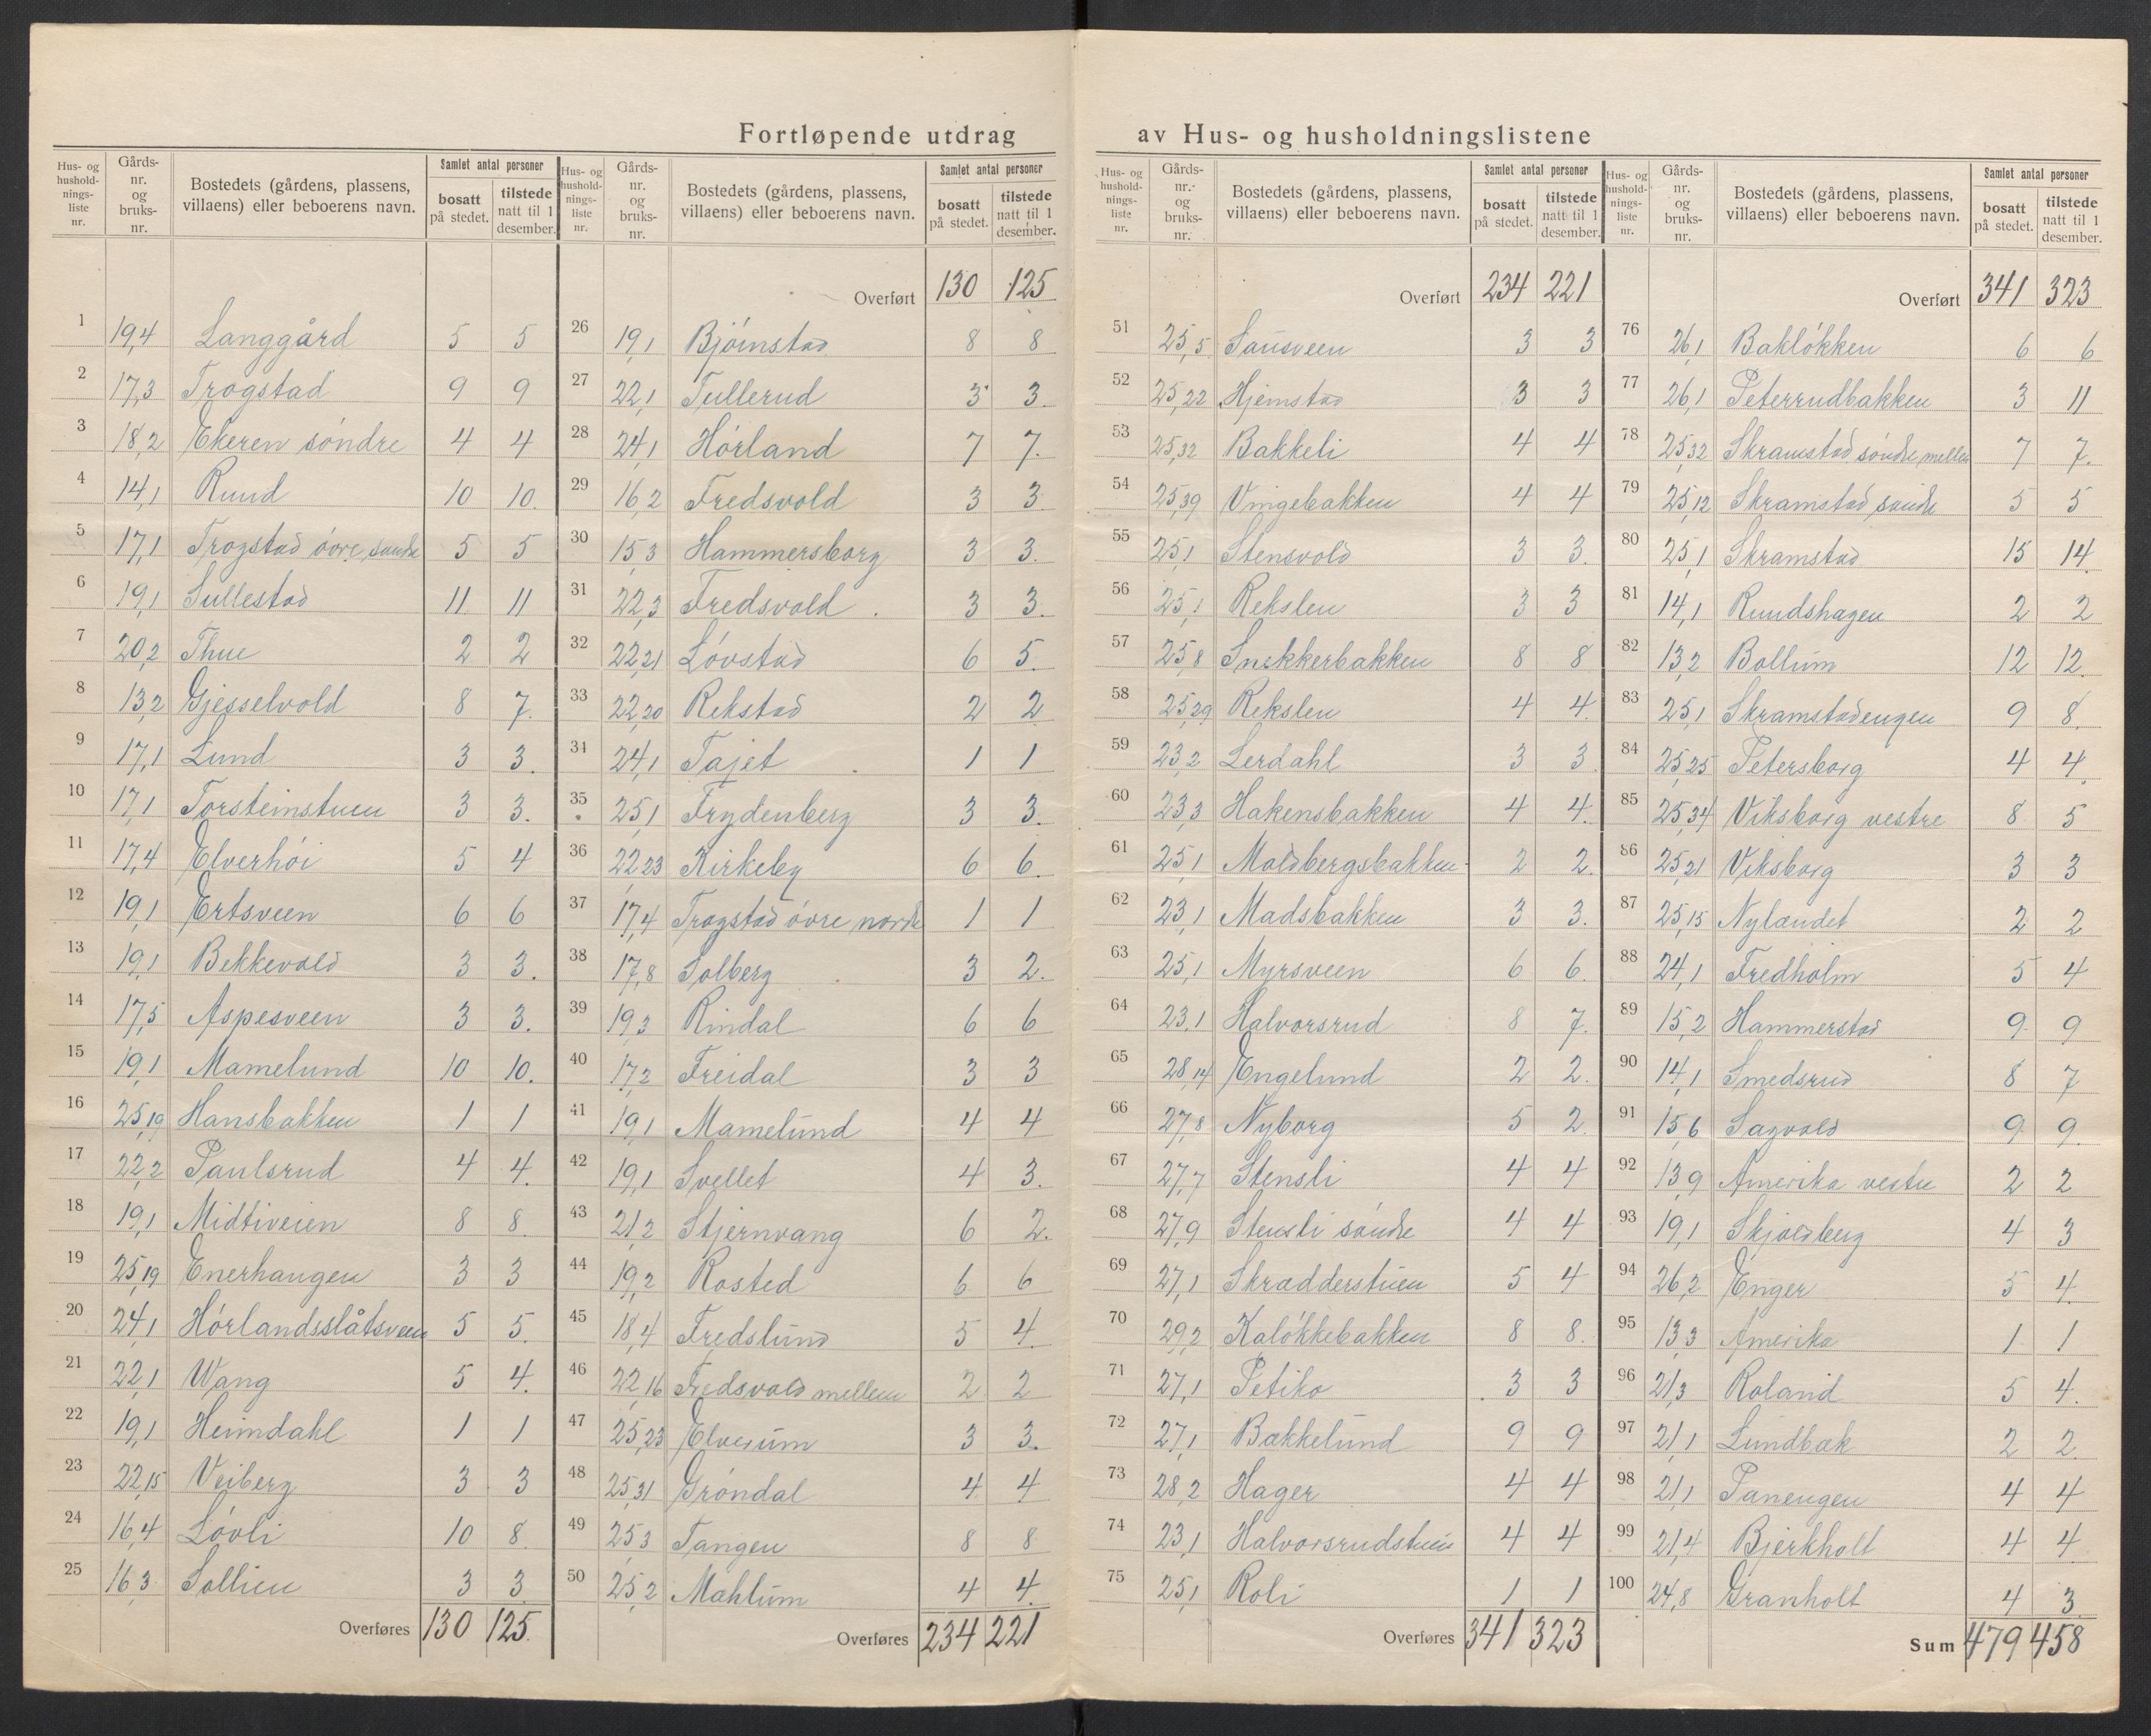 Fortløpende utdrag av Hus- og husholdningslistene
Hus- og husholdnings-liste nr. | Gårds-nr. og bruks-nr. | Bostedets (gårdens, plassens, villaens) eller beboerens navn. | Samlet antal personer | bosatt på stedet. | tilstede natt til 1 desember.
1 19,4 Langgård 5 5
2 17,3 Trogstad 9 9
3 18,2 Ekeren söndre 4 4
4 14,1 Ruud 10 10.
5 17,1 Trogstad övre, söndre 5 5
6 19,1 Sullestad 11 11
7 20,2 Thue 2 2
8 13,2 Gjesselvold 8 7.
9 17,1 Lund 3 3.
10 17,1 Torsteinstuen 3 3.
11 17,4 Elverhöi 5 4
12 19,1 Ertsveen 6 6
13 19,1 Bekkevold 3 3.
14 17,5 Aspesveen 3 3.
15 19,1 Mamelund 10 10.
16 25,19 Hansbakken 1 1
17 22,2 Paulsrud 4 4.
18 19,1 Midtiveien 8 8.
19 25,19 Enerhaugen 3 3
20 24,1 Hörlandsslåtsveen 5 5.
21 22,1 Wang 5 4.
22 19,1 Heimdahl 1 1
23 22,15 Veiberg 3 3
24 16,4 Lövli 10 8.
25 16,3 Sollien 3 3
Overføres 130 125.
Hus- og husholdnings-liste nr. | Gårds-nr. og bruks-nr. | Bostedets (gårdens, plassens, villaens) eller beboerens navn. | Samlet antal personer | bosatt på stedet. | tilstede natt til 1 desember.
Overført 130 125
26 19,1 Bjöinstad 8 8
27 22,1 Tullerud 3 3.
28 24,1 Hörland 7 7.
29 16,2 Fredsvold 3 3
30 15,3 Hammersborg 3 3.
31 22,3 Fredsvold 3 3.
32 22,21 Lövstad 6 5.
33 22,20 Rekstad 2 2
34 24,1 Tajet 1 1
35 25,1 Frydenberg 3 3.
36 22,23 Kirkeby 6 6.
37 17,4 Trogstad övre nordre 1 1
38 17,8 Solberg 3 2.
39 19,3 Rindal 6 6
40 17,2 Freidal 3 3
41 19,1 Mamelund 4 4
42 19,1 Svellet 4 3.
43 21,2 Stjernvang 6 2.
44 19,2 Rosted 6 6
45 18,4 Fredslund 5 4.
46 22,16 Fredsvold mellem 2 2
47 25,23 Elverum 3 3.
48 25,31 Gröndal 4 4
49 25,3 Tangen 8 8
50 25,2 Mahlum 4 4.
Overføres 234 221
Hus- og husholdnings-liste nr. | Gårds-nr. og bruks-nr. | Bostedets (gårdens, plassens, villaens) eller beboerens navn. | Samlet antal personer | bosatt på stedet. | tilstede natt til 1 desember.
Overført 234 221
51 25,5 Sausveen 3 3
52 25,22 Hjemstad 3 3
53 25,32 Bakkeli 4 4
54 25,39 Vingebakken 4 4
55 25,1 Stensvold 3 3.
56 25,1 Rekslen 3 3
57 25,8 Snekkerbakken 8 8
58 25,29 Rekslen 4 4.
59 23,2 Lerdahl 3 3
60 23,3 Hakensbakken 4 4.
61 25,1 Moldbergsbakken 2 2.
62 23,1 Madsbakken 3 3.
63 25,1 Myrsveen 6 6.
64 23,1 Halvorsrud 8 7.
65 28,14 Engelund 2 2.
66 27,8 Nyborg 5 2
67 27,7 Stensli 4 4
68 27,9 Stensli söndre 4 4
69 27,1 Skrædderstuen 5 4
70 29,2 Kalökkebakken 8 8.
71 27,1 Petiko 3 3
72 27,1 Bækkelund 9 9
73 28,2 Hager 4 4
74 23,1 Halvorsrudstuen 4 4
75 25,1 Roli 1 1
Overføres 341 323
Hus- og husholdnings-liste nr. | Gårds-nr. og bruks-nr. | Bostedets (gårdens, plassens, villaens) eller beboerens navn. | Samlet antal personer | bosatt på stedet. | tilstede natt til 1 desember.
Overført 341 323
76 26,1 Baklökken 6 6
77 26,1 Peterrudbakken 3 11
78 25,32 Skramstad söndre mellem 7 7.
79 25,12 Skramstad söndre 5 5
80 25,1 Skramstad 15 14.
81 14,1 Ruudshagen 2 2
82 13,2 Bollum 12 12.
83 25,1 Skramstadengen 9 8.
84 25,25 Petersborg 4 4.
85 25,34 Viksborg vestre 8 5
86 25,21 Viksborg 3 3
87 25,15 Nylændet 2 2
88 24,1 Fredholm 5 4
89 15,2 Hammerstad 9 9
90 14,1 Smedsrud 8 7
91 15,6 Sagvold 9 9.
92 13,9 Amerika vestre 2 2
93 19,1 Skjoldberg 4 3
94 26,2 Enger 5 4.
95 13,3 Amerika 1 1
96 21,3 Roland 5 4.
97 21,1 Lundbæk 2 2.
98 21,1 Panengen 4 4
99 21,4 Bjerkholt 4 4
100 24,8 Granholt 4 3
Sum 479 458